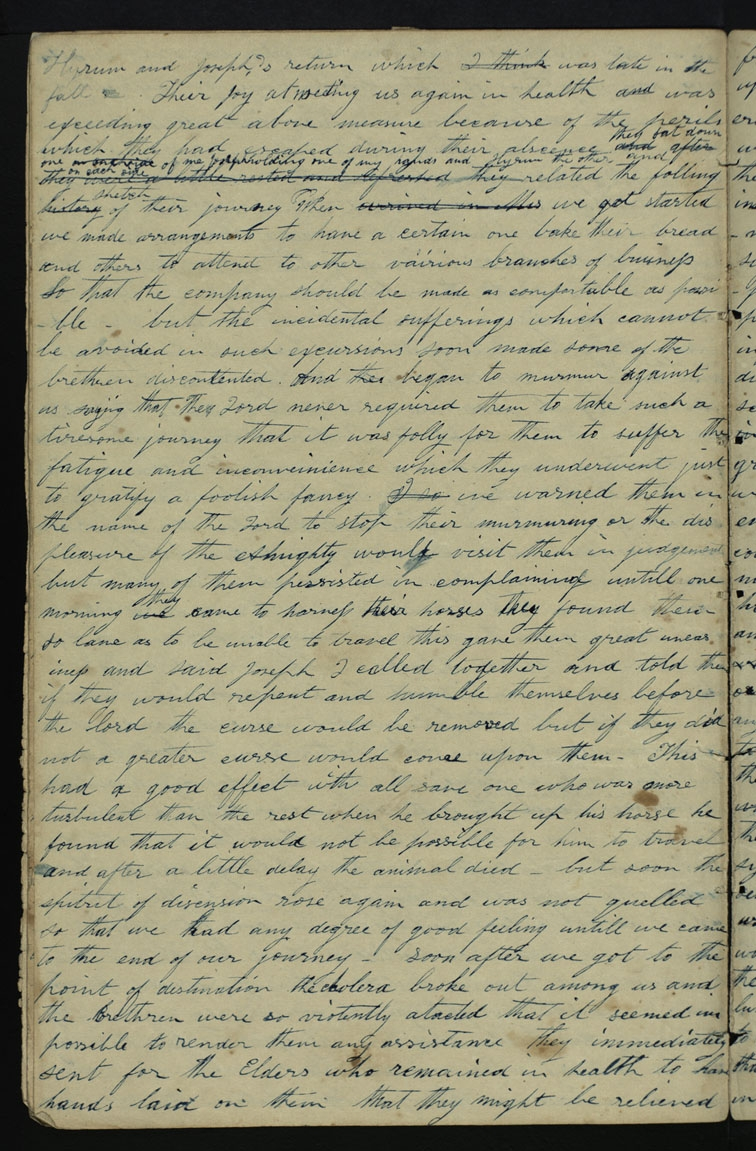 Hyrum and Joseph,s return which I think was late in the
fall Their joy at meeting us again in health and was
exceeding great above measure because of the perils
which they had escaped during their abscence and after
they sat down
one on one side of me Joseph holding one of my hands and Hyrum the other and
on each side
they were a little rested and refreshed they related the folling
sketch
history of their journey When arrived in Mis we got started
we made arrangements to have a certain one bake their bread
and others to attend to other vairious branches of buiness
So that the company should be made as comfortable as possi
-ble - but the incidental sufferings which cannot
be avoided in such excursions soon made some of the
brethren discontented. And they began to murmur against
us saying that the Lord never required them to take such a
tiresome journey that it was folly for them to suffer the
fatigue and inconveinience which they underwent just
to gratify a foolish fancy. I so we warned them in
the name of the Lord to stop their murmuring or the dis
pleasure of the almighty would visit them in judgement
but many of them persisted in complaining untill one
they
morning we came to harness their horses they found them
so lane as to be unable to travel this gave them great uneas
iness and said Joseph I called together and told them
if they would repent and humble themselves before
the lord the curse would be removed but if they did
not a greater curse would come upon them - This
had a good effect with all save one who was more
turbulent than the rest when he brought up his horse he
found that it would not be possible for him to travel
and after a little delay the animal died - but soon the
spitret of discension rose again and was not quelled
so that we had any degree of good feeling untill we came
to the end of our journey - Soon after we got to the
point of destination the cholera broke out among us and
the brethren were so violently atacted that it seemed im
possible to render them any assistance They immediately
sent for the Elders who remained in health to have
hands laid on them that they might be relieved